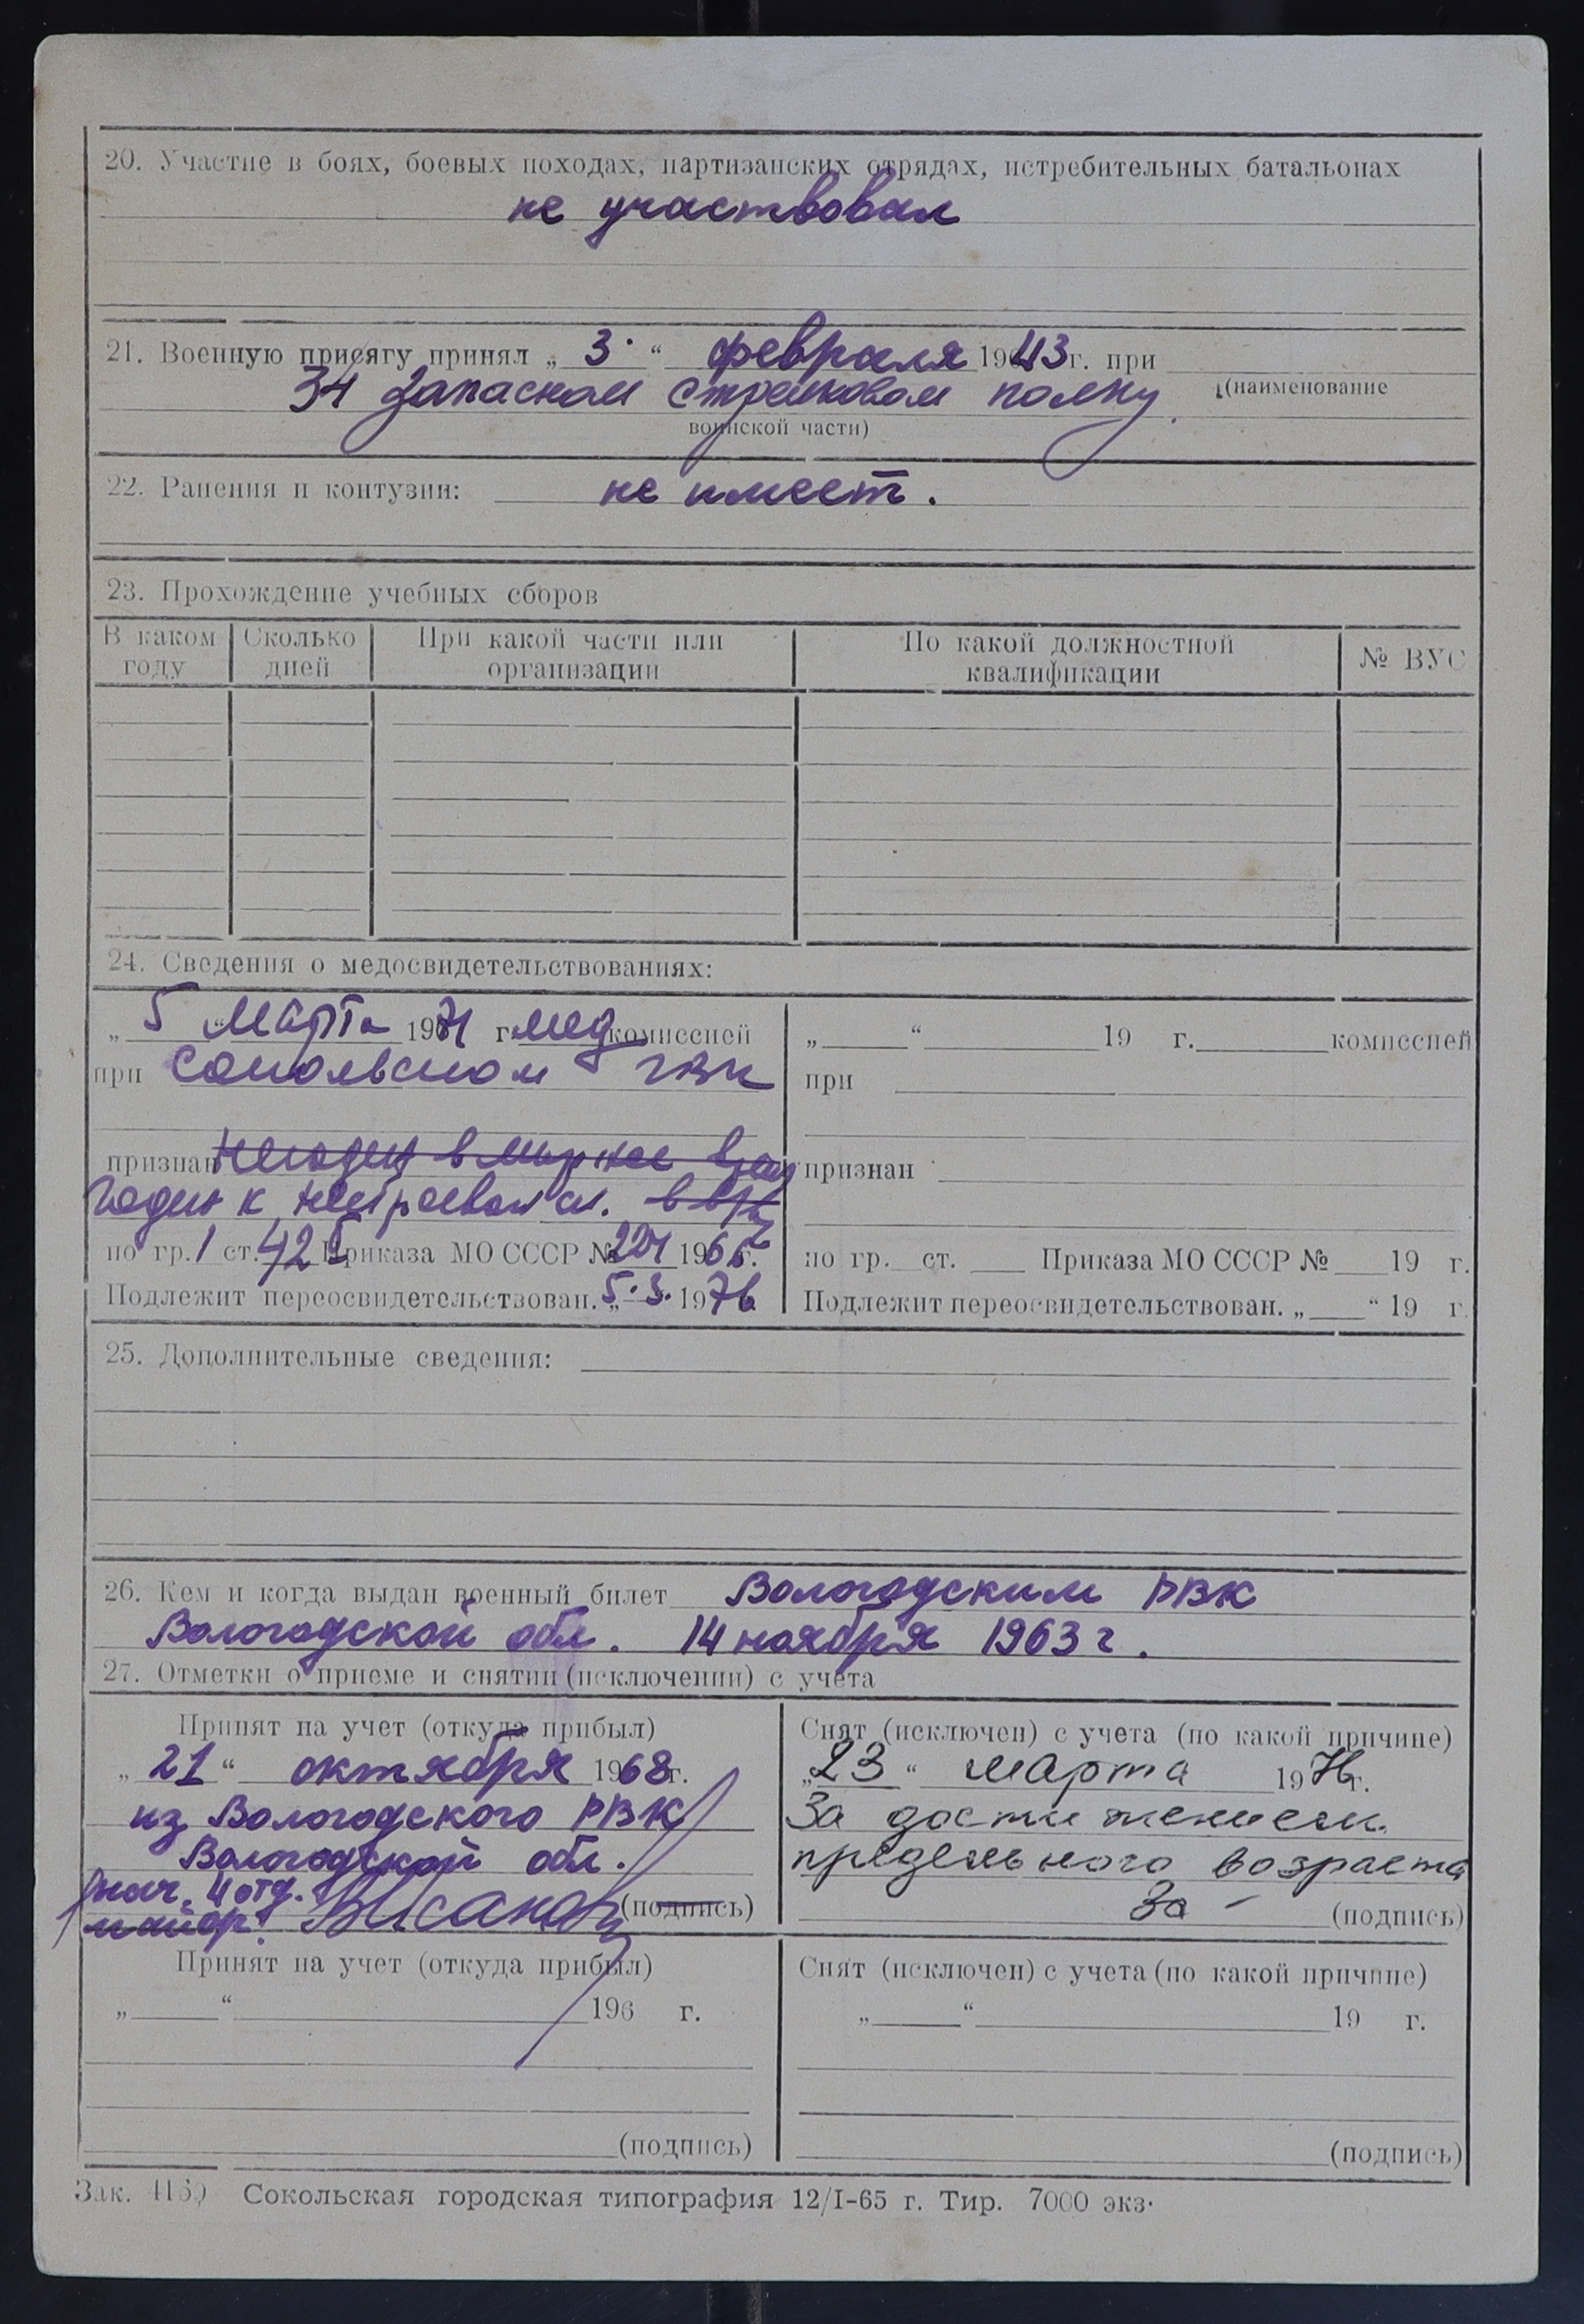 20. Участие в боях, боевых походах, партизанских отрядах, истребительных батальонах
не участвовал
21. Военную присягу принял „ 3 “ февраля 1943 г. при
34 запасном стрелковом полку (наименование
воинской части)
22. Ранения и контузии: не имеет.
23. Прохождение учебных сборов
В каком году Сколько дней При какой части или организации По какой должностной квалификации № ВУС
24. Сведения о медосвидетельствованиях:
„ 5 “ марта 1971 г. мед комиссией
при Сокольском ГВК
признан негоден в мирное время
годен к нестроевой сл. в в/вр
по гр. 1 ст. 42 Приказа МО СССР № 224 1966 г.
Подлежит переосвидетельствован. „5.3.1976
„ “ 19 г. комиссией
при
признан
по гр. ст. Приказа МО СССР № 19 г.
Подлежит переосвидетельствован. „ “ 19 г.
25. Дополнительные сведения:
26. Кем и когда выдан военный билет Вологодским РВК
Вологодской обл. 14 ноября 1963 г.
27. Отметки о приеме и снятии (исключении) с учета
Принят на учет (откуда прибыл)
„ 21 “ октября 1968 г.
из Вологодского РВК
Вологодской обл.
нач. 4 отд.
майор (подпись)
Снят (исключен) с учета (по какой причине)
„ 23 “ марта 1976 г.
За достижением
предельного возраста
За - (подпись)
Принят на учет (откуда прибыл)
„ “ 196 г.
(подпись)
Снят (исключен) с учета (по какой причине)
„ “ 19 г.
(подпись)
Зак. Сокольская городская типография 12/I-65 г. Тир. 7000 экз.